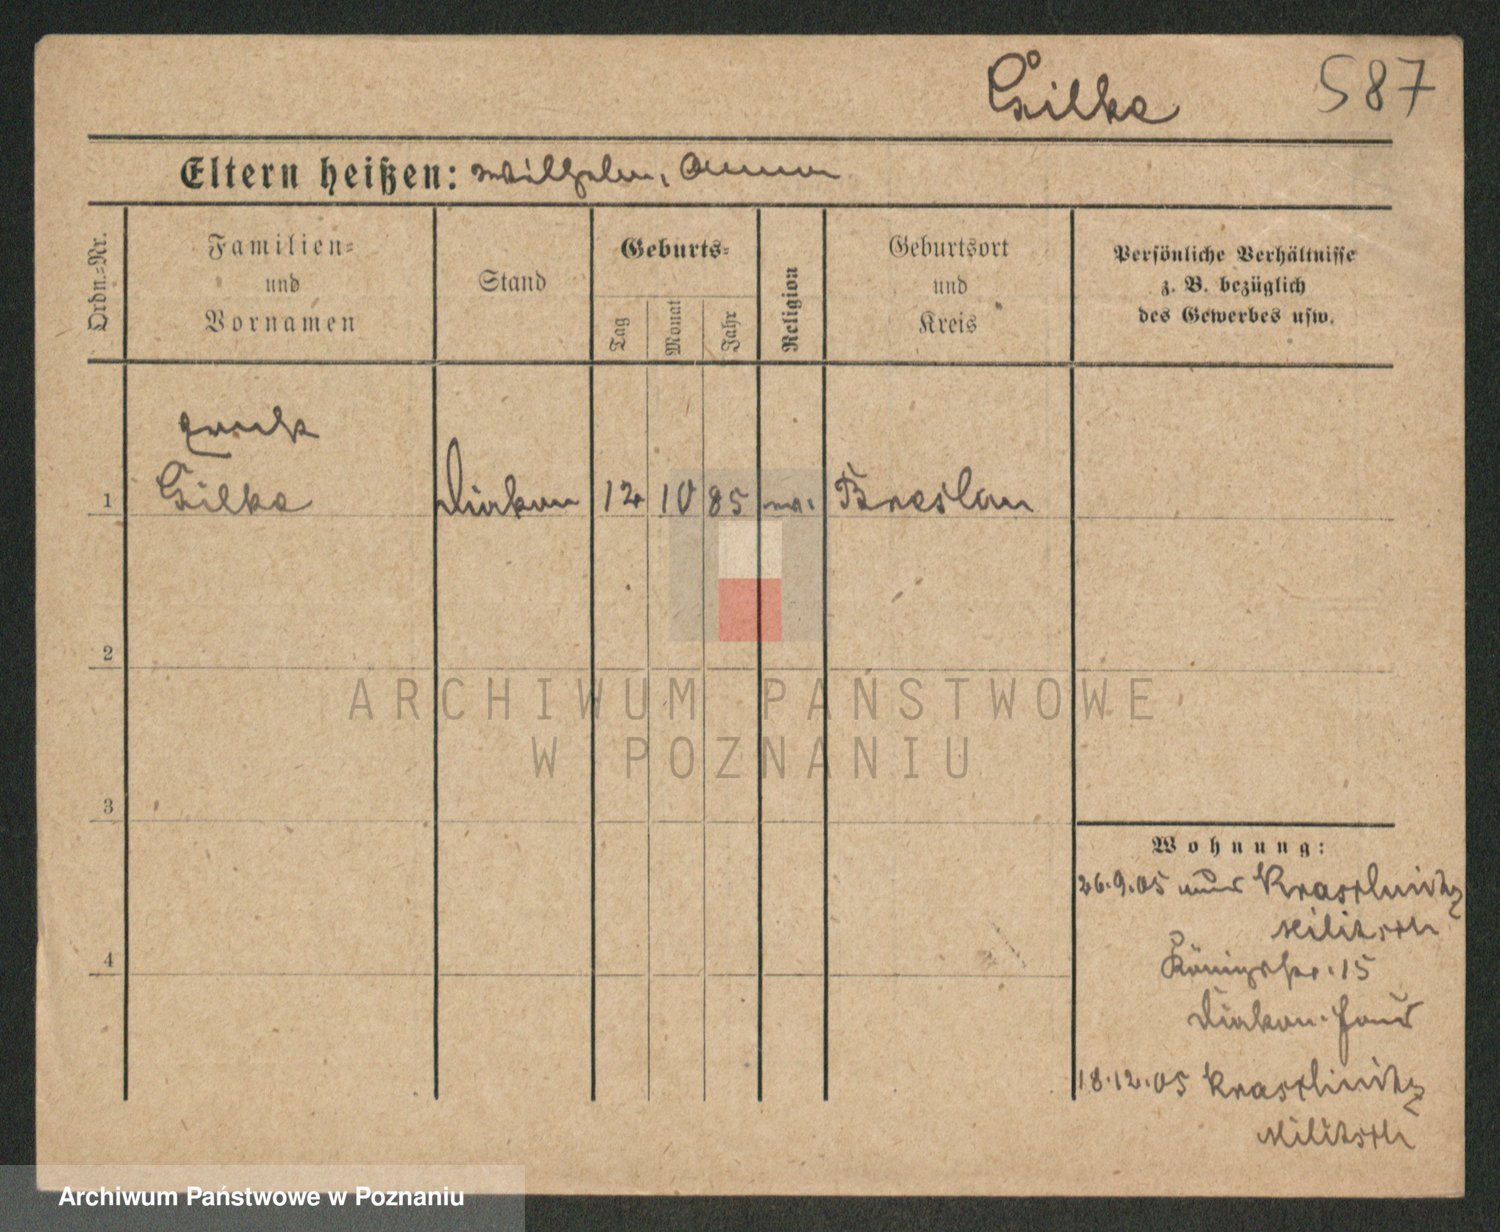 Gilke 587
Eltern heißen: Wilhelm, Anna
Ordn.-Nr.
Familien-
und
Vornamen
Stand
Geburts-
Tag
Monat
Jahr
Religion
Geburtsort
und
Kreis
Persönliche Verhältnisse
z. B. bezüglich
des Gewerbes usw.
1 Gilke Diakon 12 10 85 ev. Breslau
2
3
4
Wohnung:
26.9.05 aus Kraschnitz
Militsch
Königstr. 15
Diakon. Haus
18.12.05 Kraschnitz
Militsch
ARCHIWUM PAŃSTWOWE
W POZNANIU
Archiwum Państwowe w Poznaniu